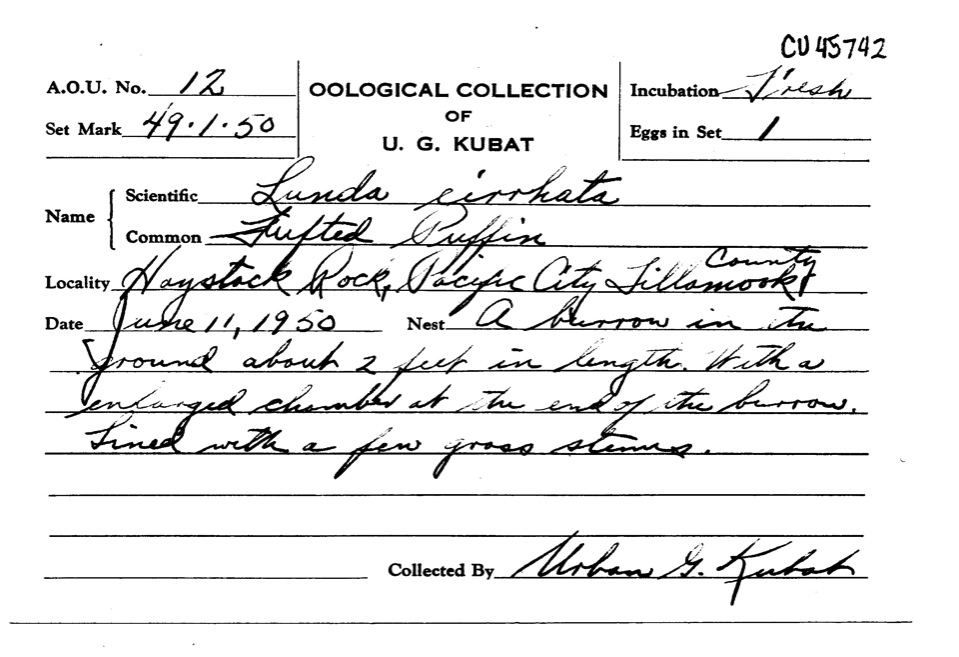 CU 45742
A.O.U. No. 12
OOLOGICAL COLLECTION
OF
U. G. KUBAT
Incubation Fresh
Set Mark 49·1·50
Eggs in Set 1
Name
Scientific Lunda cirrhata
Common Tufted Puffin
Locality Haystack Rock, Pacific City Tillamook County
Date June 11, 1950 Nest A burrow in the
ground about 2 feet in length. With a
enlarged chamber at the end of the burrow.
Lined with a few grass stems.
Collected By Urban G. Kubat